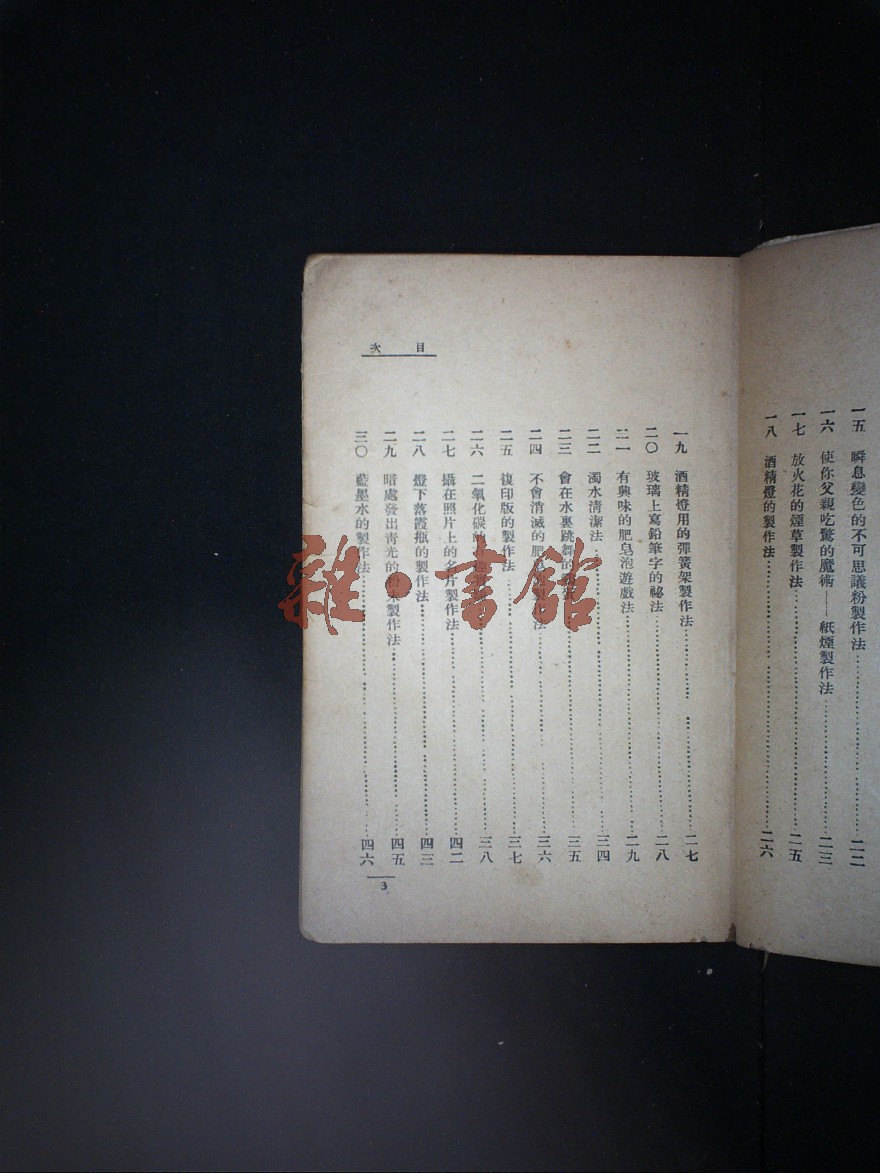 一五　瞬息變色的不可思議粉製作法……二二
一六　使你父親吃驚的魔術——紙煙製作法……二三
一七　放火花的煙草製作法……二五
一八　酒精燈的製作法……二六
目次
一九　酒精燈用的彈簧架製作法……二七
二〇　玻璃上寫鉛筆字的祕法……二八
二一　有興味的肥皂泡遊戲法……二九
二二　濁水清潔法……三四
二三　會在水裏跳舞的……三五
二四　不會消滅的肥皂泡製作法……三六
二五　複印版的製作法……三七
二六　二氧化碳的……三八
二七　攝在照片上的名片製作法……四二
二八　燈下落霞瓶的製作法……四三
二九　暗處發出靑光的粉末製作法……四五
三〇　藍墨水的製作法……四六
3
雜·書館